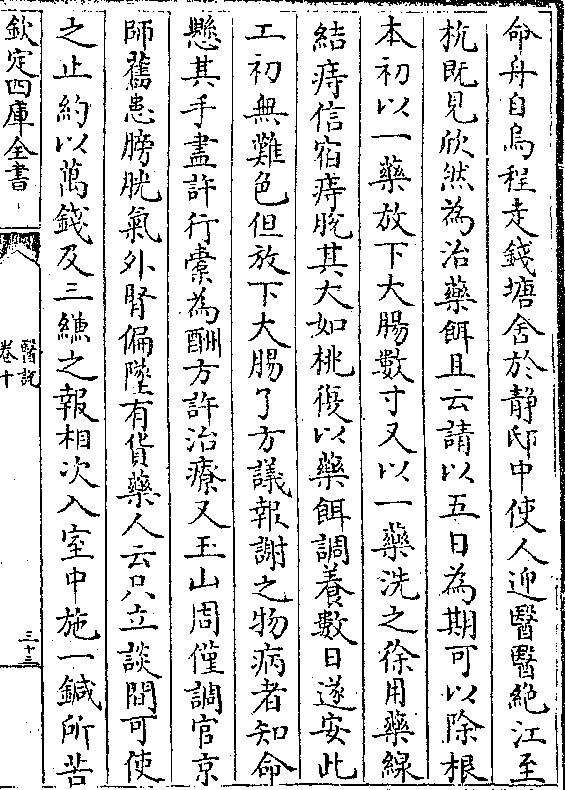 命舟自烏程走錢塘舍於静邸中使人迎醫醫絶江至
杭既見欣然為治藥餌且云請以五日為期可以除根
本初以一藥放下大腸數寸又以一藥洗之徐用藥線
結痔信宿痔脱其大如桃復以藥餌調養數日遂安此
工初無難色但放下大腸了方議報謝之物病者知命
懸其手盡許行橐為酬方許治療又玉山周僅調官京
師舊患膀胱氣外腎偏墜有貨藥人云只立談間可使
之止約以萬錢及三縑之報相次入室中施一鍼所苦
欽定四庫全書
醫説
卷十
三十三